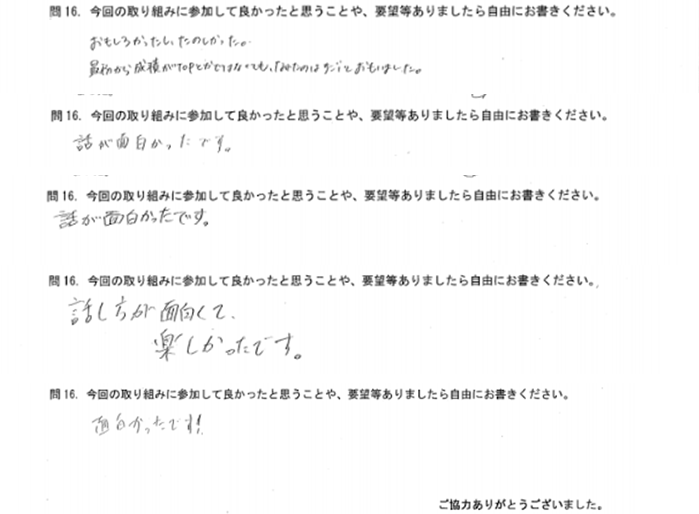 問16. 今回の取り組みに参加して良かったと思うことや、要望等ありましたら自由にお書きください。
おもしろかったし、たのしかった。
最初から成績がTOPとかではなくても、なれたのはすごいとおもいました。
問16. 今回の取り組みに参加して良かったと思うことや、要望等ありましたら自由にお書きください。
話が面白かったです。
問16. 今回の取り組みに参加して良かったと思うことや、要望等ありましたら自由にお書きください。
話が面白かったです。
問16. 今回の取り組みに参加して良かったと思うことや、要望等ありましたら自由にお書きください。
話し方が面白くて、
楽しかったです。
問16. 今回の取り組みに参加して良かったと思うことや、要望等ありましたら自由にお書きください。
面白かったです!
ご協力ありがとうございました。